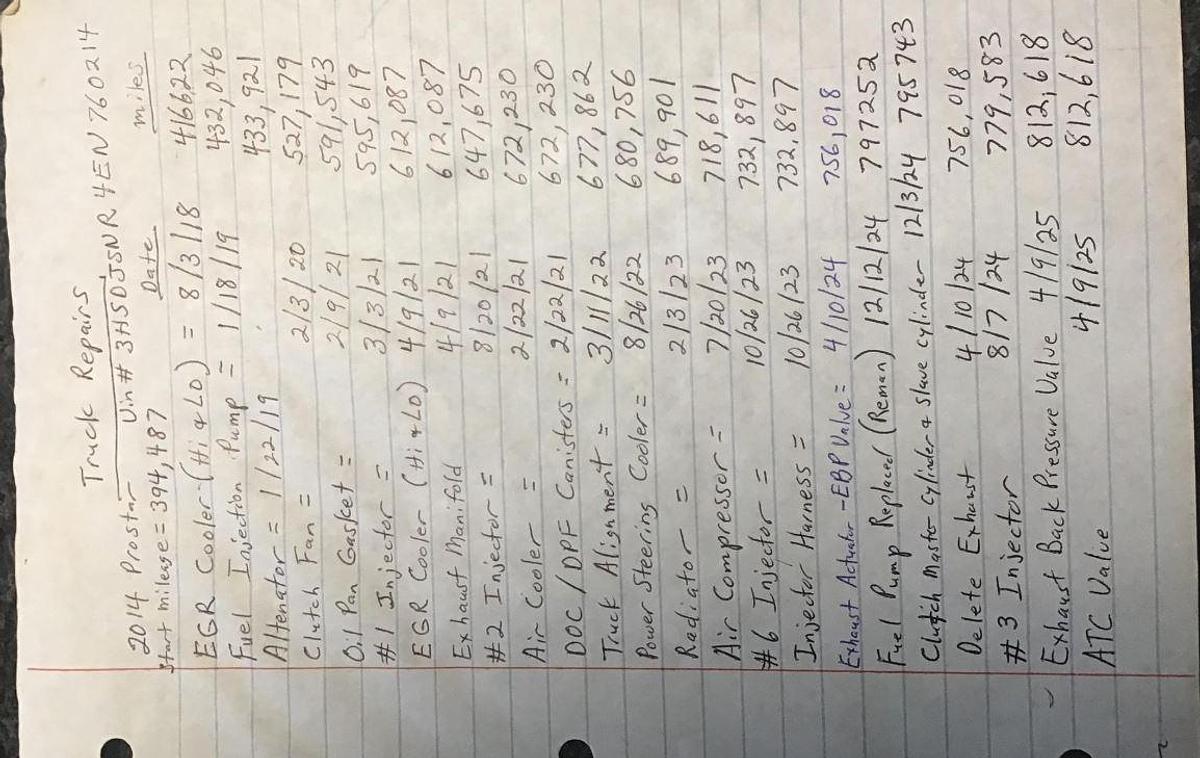 Truck Repairs
2014 Prostar Vin# 3HSDJSNR4EN760214
Start milease = 394,487 Date miles
EGR Cooler (Hi & LO) = 8/3/18 416622
Fuel Injection Pump = 1/18/19 432,046
Alternator = 1/22/19 433,921
Clutch Fan = 2/3/20 527,179
Oil Pan Gasket = 2/9/21 591,543
#1 Injector = 3/3/21 595,619
EGR Cooler (Hi & LO) 4/9/21 612,087
Exhaust Manifold 4/9/21 612,087
#2 Injector = 8/20/21 647,675
Air Cooler = 2/22/21 672,230
DOC/DPF Canisters = 2/22/21 672,230
Truck Alignment = 3/11/22 677,862
Power Steering Cooler = 8/26/22 680,756
Radiator = 2/3/23 689,901
Air Compressor = 7/20/23 718,611
#6 Injector = 10/26/23 732,897
Injector Harness = 10/26/23 732,897
Exhaust Actuator - EBP Valve = 4/10/24 756,018
Fuel Pump Replaced (Reman) 12/12/24 797252
Clutch Master Cylinder & Slave cylinder 12/3/24 795743
Delete Exhaust 4/10/24 756,018
#3 Injector 8/7/24 779,583
✓ Exhaust Back Pressure Value 4/9/25 812,618
ATC Value 4/9/25 812,618